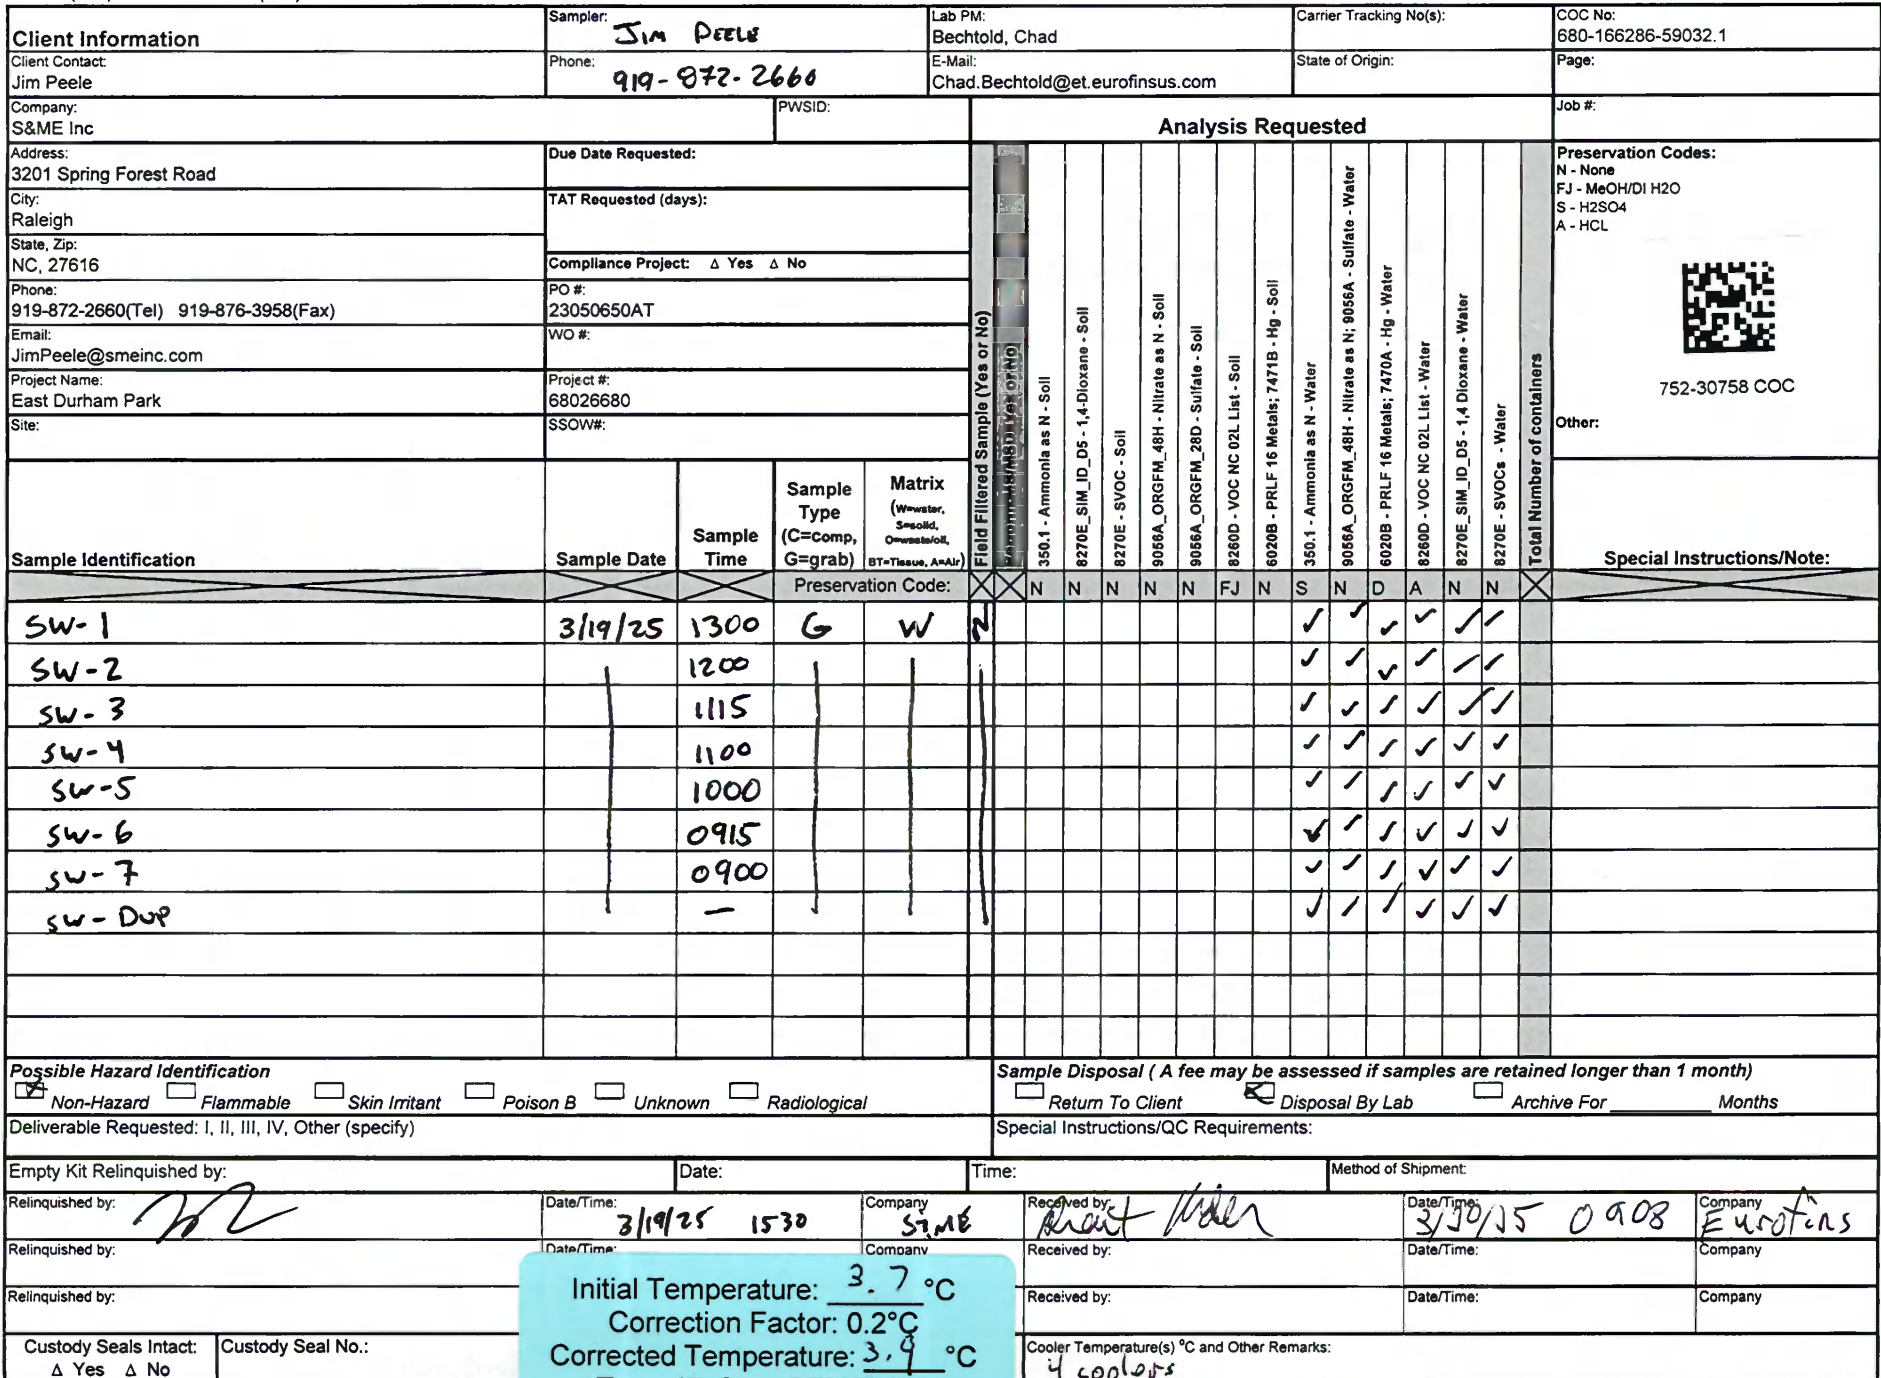 Client Information
Sampler: JIM PEELE
Lab PM: Bechtold, Chad
Carrier Tracking No(s):
COC No: 680-166286-59032.1
Client Contact: Jim Peele
Phone: 919-872-2660
E-Mail: Chad.Bechtold@et.eurofinsus.com
State of Origin:
Page:
Company: S&ME Inc
PWSID:
Analysis Requested
Job #:
Address: 3201 Spring Forest Road
Due Date Requested:
City: Raleigh
TAT Requested (days):
State, Zip: NC, 27616
Compliance Project: Δ Yes Δ No
Phone: 919-872-2660(Tel) 919-876-3958(Fax)
PO #: 23050650AT
Email: JimPeele@smeinc.com
WO #:
Project Name: East Durham Park
Project #: 68026680
Site:
SSOW#:
Preservation Codes:
N - None
FJ - MeOH/DI H2O
S - H2SO4
A - HCL
752-30758 COC
Other:
Sample Identification
Sample Date
Sample Time
Sample Type (C=comp, G=grab)
Matrix (W=water, S=solid, O=waste/oil, BT=Tissue, A=Air)
Field Filtered Sample (Yes or No)
350.1 - Ammonia as N - Soil
8270E_SIM_ID_D5 - 1,4-Dioxane - Soil
8270E - SVOC - Soil
9056A_ORGFM_48H - Nitrate as N - Soil
9056A_ORGFM_28D - Sulfate - Soil
8260D - VOC NC 02L List - Soil
6020B - PRLF 16 Metals; 7471B - Hg - Soil
350.1 - Ammonia as N - Water
9056A_ORGFM_48H - Nitrate as N; 9056A - Sulfate - Water
6020B - PRLF 16 Metals; 7470A - Hg - Water
8260D - VOC NC 02L List - Water
8270E_SIM_ID_D5 - 1,4 Dioxane - Water
8270E - SVOCs - Water
Total Number of containers
Special Instructions/Note:
Preservation Code: N N N N N FJ N S N D A N N
SW-1 3/19/25 1300 G W N ✓ ✓ ✓ ✓ ✓ ✓
SW-2 1200 ✓ ✓ ✓ ✓ ✓ ✓
SW-3 1115 ✓ ✓ ✓ ✓ ✓ ✓
SW-4 1100 ✓ ✓ ✓ ✓ ✓ ✓
SW-5 1000 ✓ ✓ ✓ ✓ ✓ ✓
SW-6 0915 ✓ ✓ ✓ ✓ ✓ ✓
SW-7 0900 ✓ ✓ ✓ ✓ ✓ ✓
SW-DUP — ✓ ✓ ✓ ✓ ✓ ✓
Possible Hazard Identification
Non-Hazard Flammable Skin Irritant Poison B Unknown Radiological
Sample Disposal ( A fee may be assessed if samples are retained longer than 1 month)
Return To Client Disposal By Lab Archive For Months
Deliverable Requested: I, II, III, IV, Other (specify)
Special Instructions/QC Requirements:
Empty Kit Relinquished by:
Date:
Time:
Method of Shipment:
Relinquished by:
Date/Time: 3/19/25 1530
Company S&ME
Received by:
Date/Time: 0908
Company Eurofins
Relinquished by:
Date/Time:
Company
Received by:
Date/Time:
Company
Relinquished by:
Received by:
Date/Time:
Company
Initial Temperature: 3.7 °C
Correction Factor: 0.2°C
Corrected Temperature: 3.9 °C
Custody Seals Intact:
Δ Yes Δ No
Custody Seal No.:
Cooler Temperature(s) °C and Other Remarks:
4 coolers